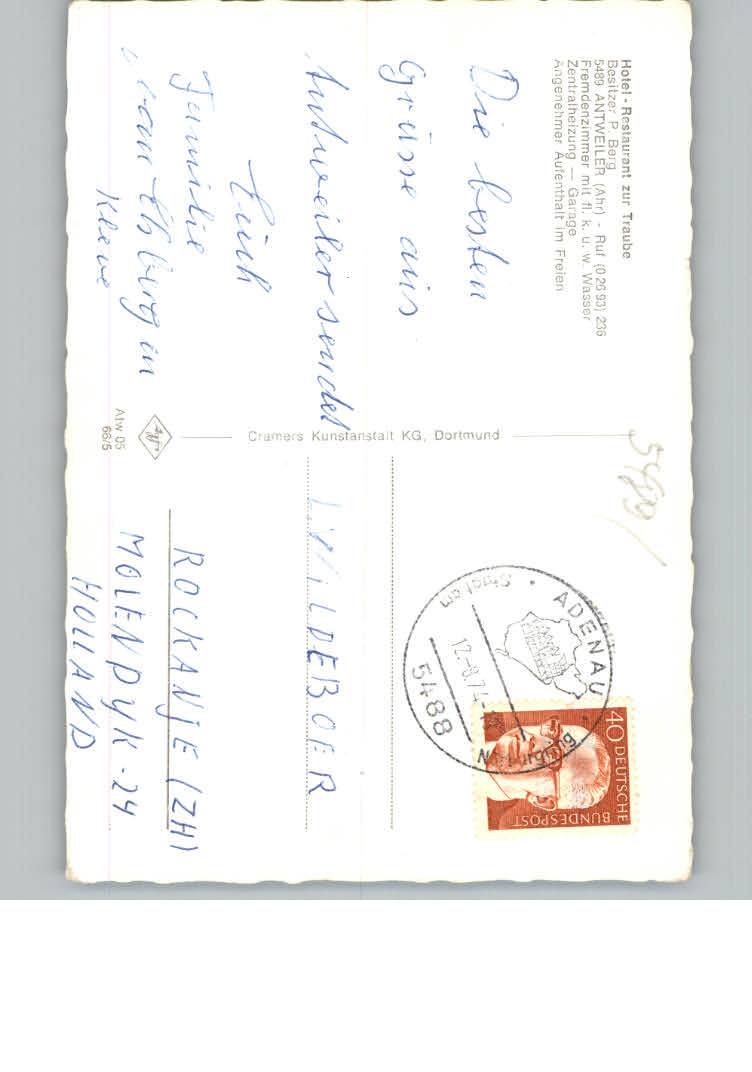 Hotel - Restaurant zur Traube
Besitzer P. Berg
5489 ANTWEILER (Ahr) - Ruf (02693) 236
Fremdenzimmer mit fl. k. u. w. Wasser
Zentralheizung — Garage
Angenehmer Aufenthalt im Freien
Die besten
Grüsse aus
Antweiler sendet
Euch
Familie
van Elsbergen
Kleve
Cramers Kunstanstalt KG, Dortmund
Atw 05
66/5
5489/
ADENAU
12.-8.74
5488
Nürburgring
40 DEUTSCHE
BUNDESPOST
L. WILDEBOER
ROCKANJE (ZH)
MOLENDYK - 24
HOLLAND